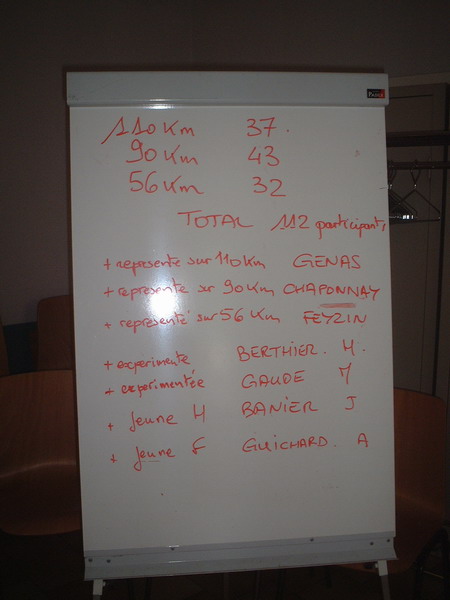 110 Km 37.
90 Km 43
56 Km 32
TOTAL 112 participants
+ représenté sur 110 Km GENAS
+ représenté sur 90 Km CHAPONNAY
+ représenté sur 56 Km FEYZIN
+ experimente BERTHIER. H.
+ expérimentée GAUDE M
+ Jeune H BANIER J
+ Jeune F GUICHARD. A